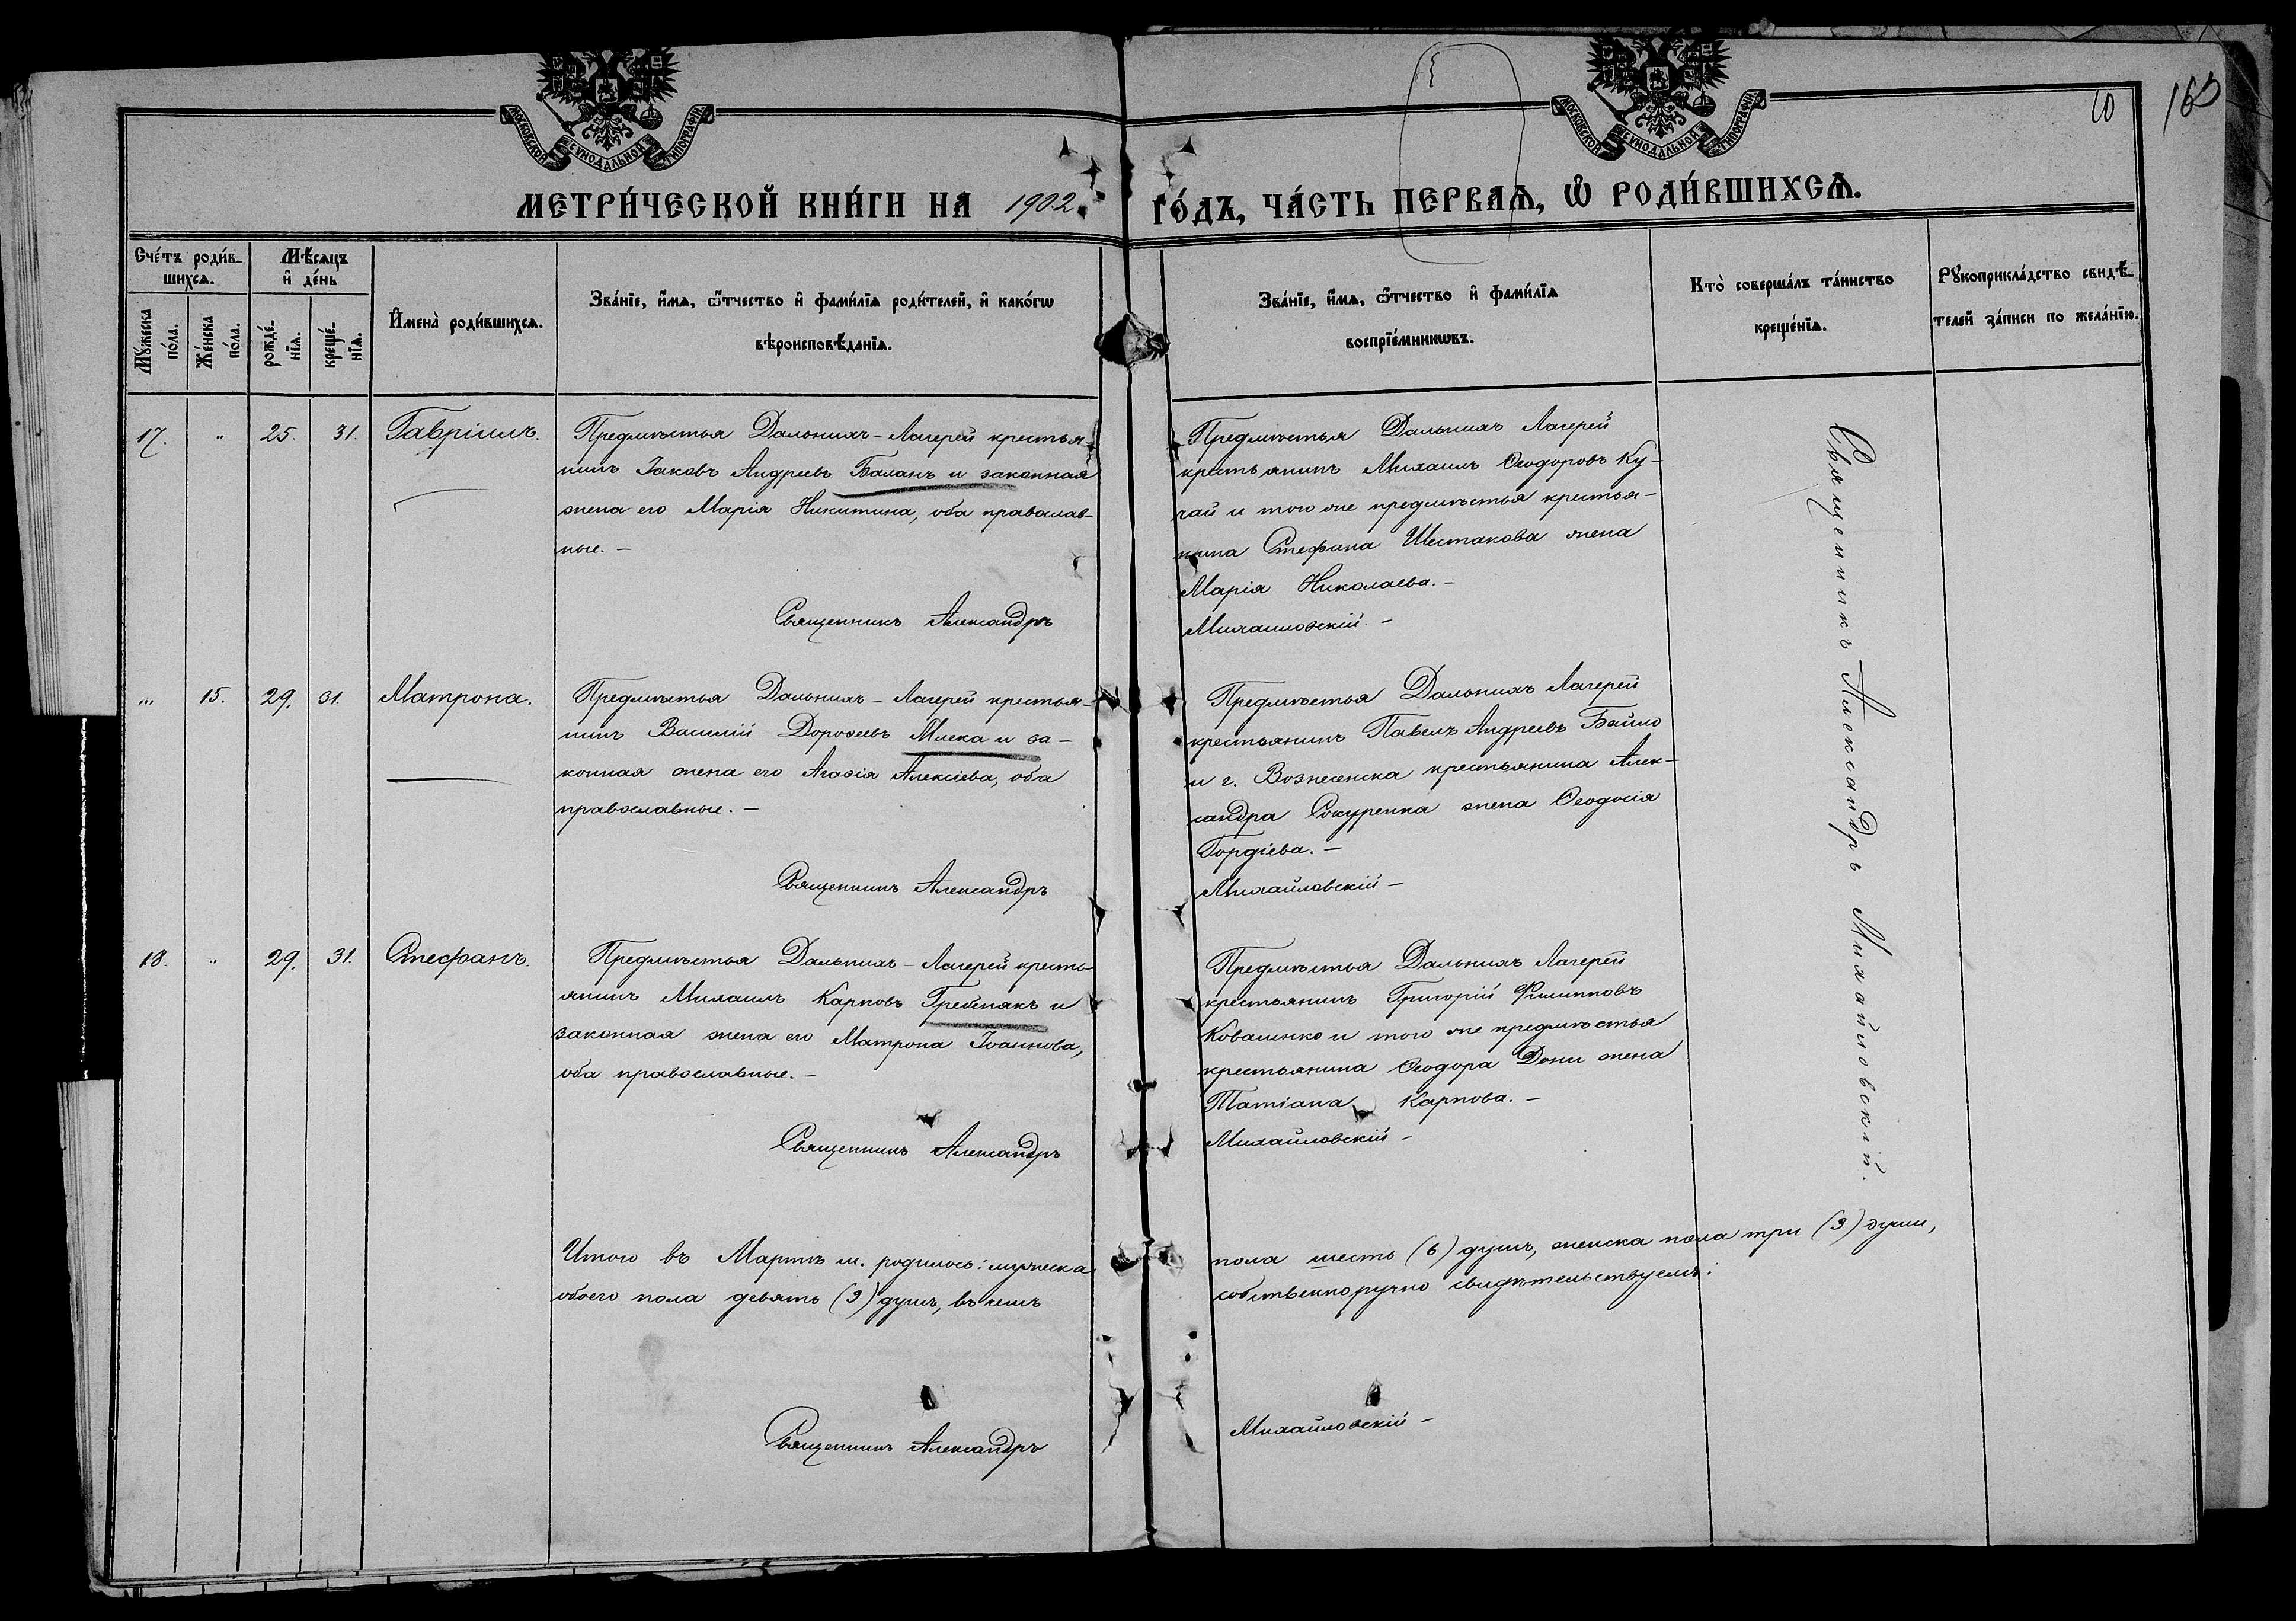 10
163
МОСКОВСКОЙ СѴНОДАЛЬНОЙ ТИПОГРАФІИ
МОСКОВСКОЙ СѴНОДАЛЬНОЙ ТИПОГРАФІИ
МЕТРИ́ЧЕСКОЙ КНИ́ГИ НА 1902 ГО́ДЪ, ЧА́СТЬ ПЕРВАѦ, Ѡ҆ РОДИ́ВШИХСѦ.
Сче́тъ роди́в-
шихсѧ.
Мꙋ́жеска
по́ла.
Же́нска
по́ла.
Мѣ́сѧцъ
и҆ де́нь
рожде́-
нїѧ.
креще́-
нїѧ.
И҆мена̀ роди́вшихсѧ.
Зва́нїе, и҆́мѧ, ѻ҆́тчество и҆ фами́лїѧ роди́телей, и҆ како́гѡ
вѣроисповѣ́данїѧ.
Зва́нїе, и҆́мѧ, ѻ҆́тчество и҆ фами́лїѧ
воспрїе́мникѡвъ.
Кто̀ соверша́лъ та́инство
креще́нїѧ.
Рꙋкоприкла́дство свидѣ́-
телей за́писи по жела́нїю.
17. " 25. 31. Гавріилъ.
Предмѣстья Дальнихъ-Лагерей крестья-
нинъ Іаковъ Андреевъ Баланъ и законная
жена его Марія Никитина, оба православ-
ные. –
Предмѣстья Дальнихъ Лагерей
крестьянинъ Михаилъ Ѳеодоровъ Ку-
чай и того же предмѣстья крестья-
нина Стефана Шестакова жена
Марія Николаева. –
Священникъ Александръ Михайловскій. –
" 15. 29. 31. Матрона.
Предмѣстья Дальнихъ-Лагерей крестья-
нинъ Василій Дороѳеевъ Млека и за-
конная жена его Агаѳія Алексіева, оба
православные. –
Предмѣстья Дальнихъ Лагерей
крестьянинъ Павелъ Андреевъ Байло
и г. Вознесенска крестьянина Алек-
сандра Сокуренка жена Ѳеодосія
Гордіева. –
Священникъ Александръ Михайловскій –
18. " 29. 31. Стефанъ.
Предмѣстья Дальнихъ-Лагерей кресть-
янинъ Михаилъ Карповъ Гребенякъ и
законная жена его Матрона Іоаннова,
оба православные. –
Предмѣстья Дальнихъ Лагерей
крестьянинъ Григорій Филипповъ
Коваленко и того же предмѣстья
крестьянина Ѳеодора Дони жена
Татіана Карпова. –
Священникъ Александръ Михайловскій –
Священникъ Александръ Михайловскій.
Итого въ Мартѣ м. родилось: мужеска пола шесть (6) душъ, женска пола три (3) души,
обоего пола девять (9) душъ, въ чемъ собственноручно свидѣтельствуемъ:
Священникъ Александръ Михайловскій –